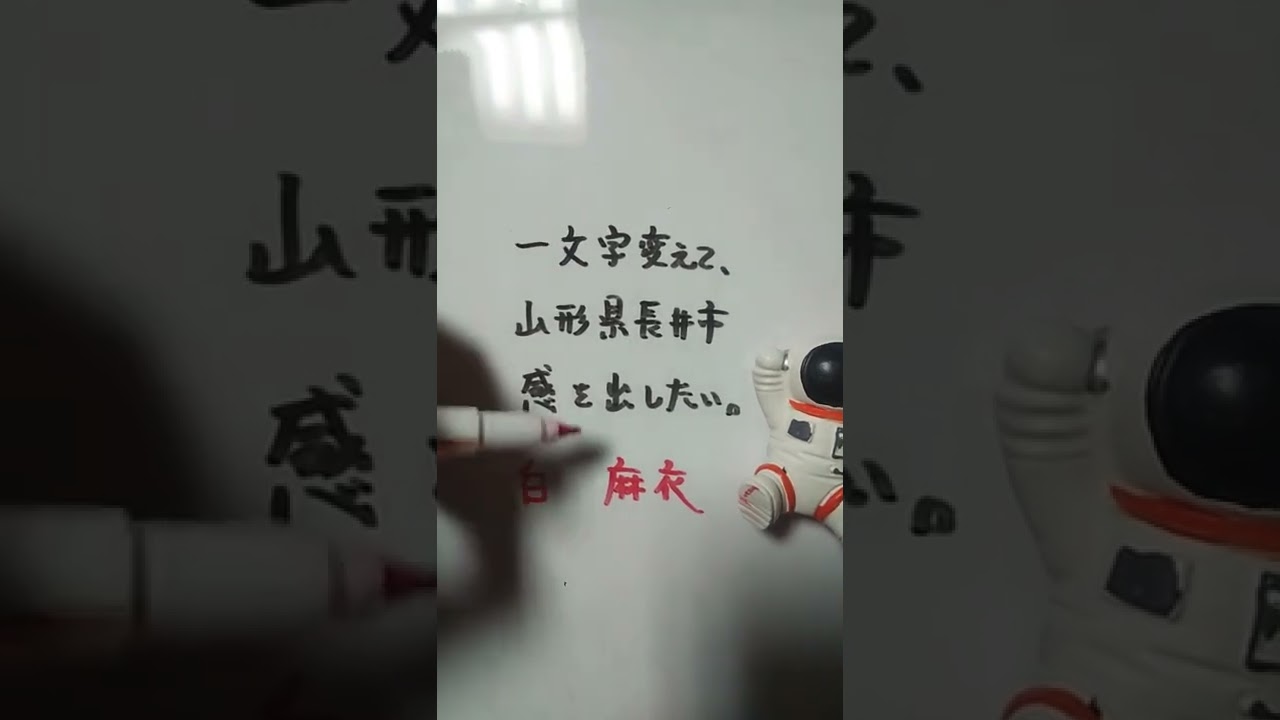 一文字変えて、
山形県長井市
感を出したい。
白 麻衣